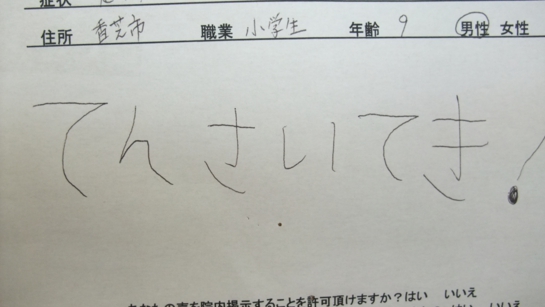 症状
住所 香芝市 職業 小学生 年齢 9 男性 女性
てんさいてき!
声を院内掲示することを許可頂けますか?はい いいえ